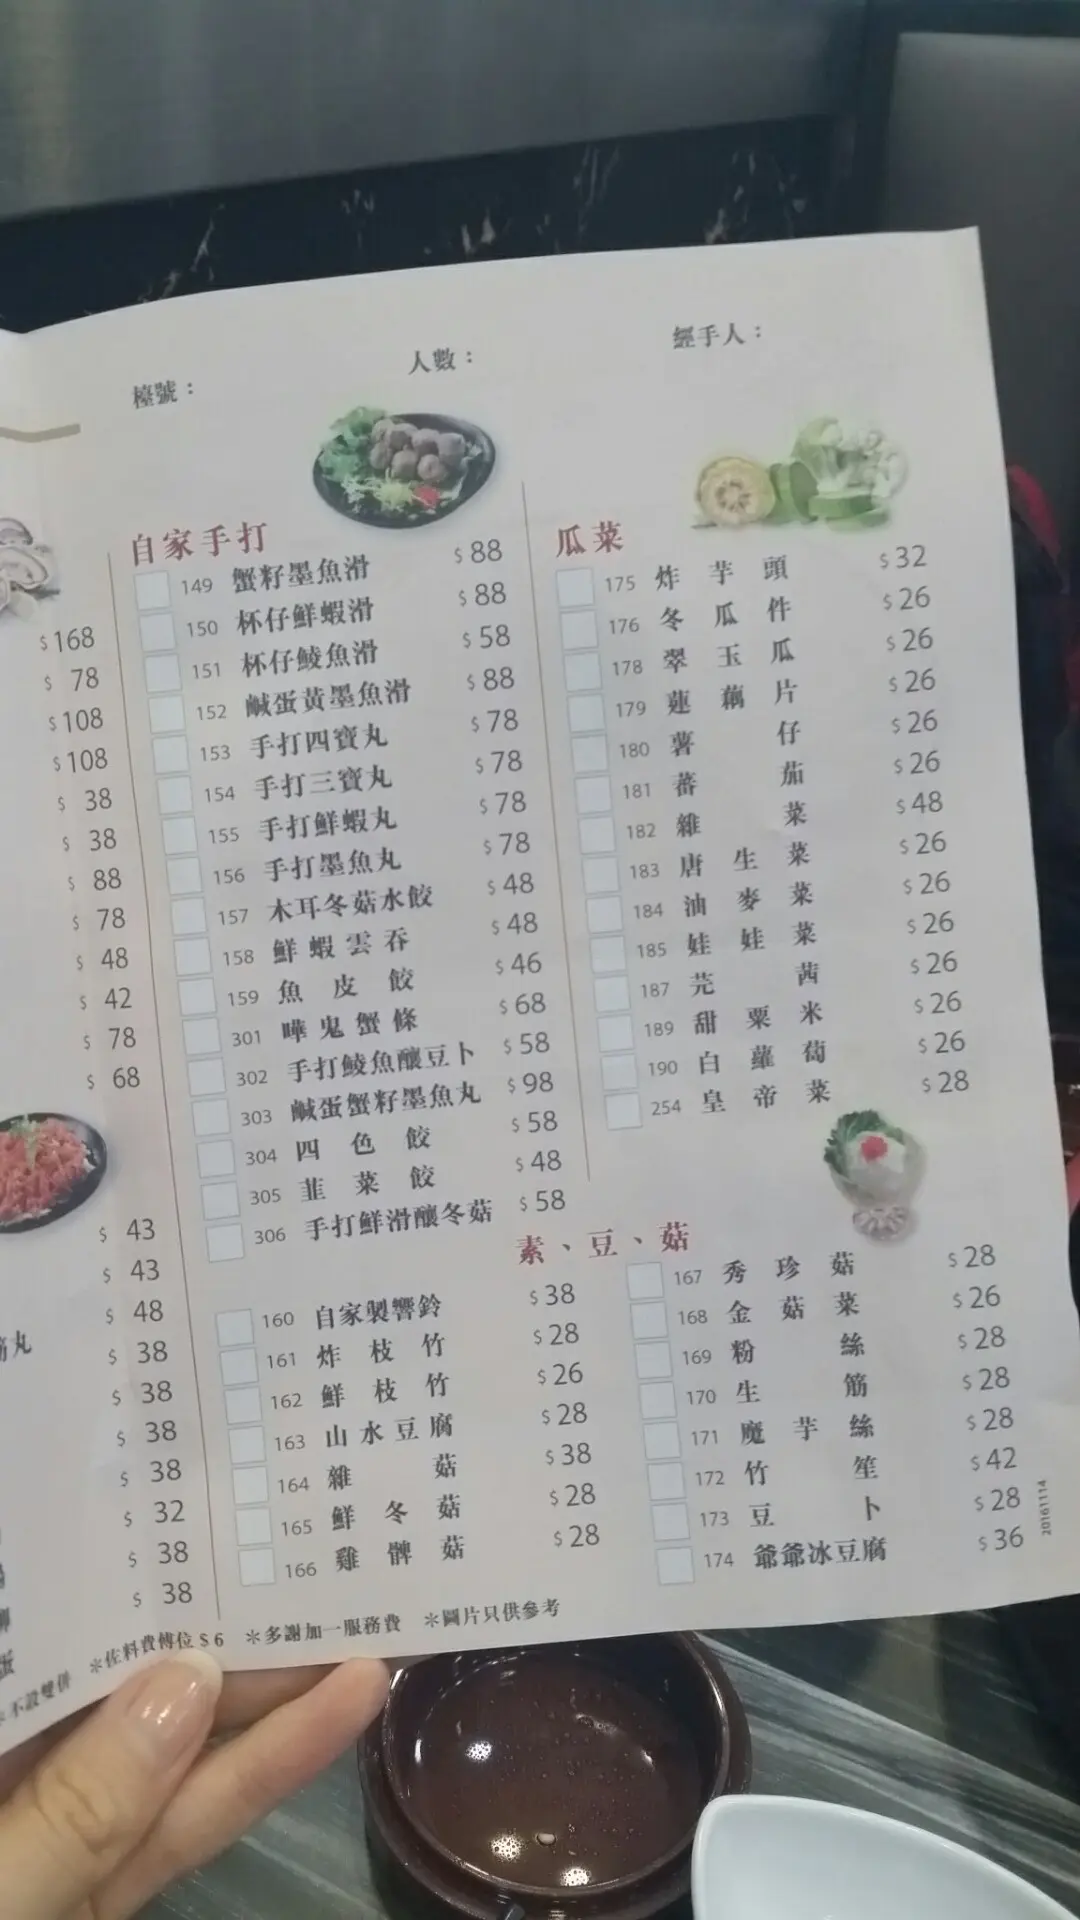 檯號：
人數：
經手人：
$168
$ 78
$108
$108
$ 38
$ 38
$ 88
$ 78
$ 48
$ 42
$ 78
$ 68
$ 43
$ 43
$ 48
丸
$ 38
$ 38
$ 38
$ 38
$ 32
$ 38
$ 38
自家手打
149 蟹籽墨魚滑 $88
150 杯仔鮮蝦滑 $88
151 杯仔鯪魚滑 $58
152 鹹蛋黃墨魚滑 $88
153 手打四寶丸 $78
154 手打三寶丸 $78
155 手打鮮蝦丸 $78
156 手打墨魚丸 $78
157 木耳冬菇水餃 $48
158 鮮蝦雲吞 $48
159 魚皮餃 $46
301 嘩鬼蟹條 $68
302 手打鯪魚釀豆卜 $58
303 鹹蛋蟹籽墨魚丸 $98
304 四色餃 $58
305 韮菜餃 $48
306 手打鮮滑釀冬菇 $58
瓜菜
175 炸芋頭 $32
176 冬瓜件 $26
178 翠玉瓜 $26
179 蓮藕片 $26
180 薯仔 $26
181 蕃茄 $26
182 雜菜 $48
183 唐生菜 $26
184 油麥菜 $26
185 娃娃菜 $26
187 芫茜 $26
189 甜粟米 $26
190 白蘿蔔 $26
254 皇帝菜 $28
素、豆、菇
160 自家製響鈴 $38
161 炸枝竹 $28
162 鮮枝竹 $26
163 山水豆腐 $28
164 雜菇 $38
165 鮮冬菇 $28
166 雞髀菇 $28
167 秀珍菇 $28
168 金菇菜 $26
169 粉絲 $28
170 生筋 $28
171 魔芋絲 $28
172 竹笙 $42
173 豆卜 $28
174 爺爺冰豆腐 $36
20161114
蛋
＊不設雙併 ＊佐料費每位 $6 ＊多謝加一服務費 ＊圖片只供參考